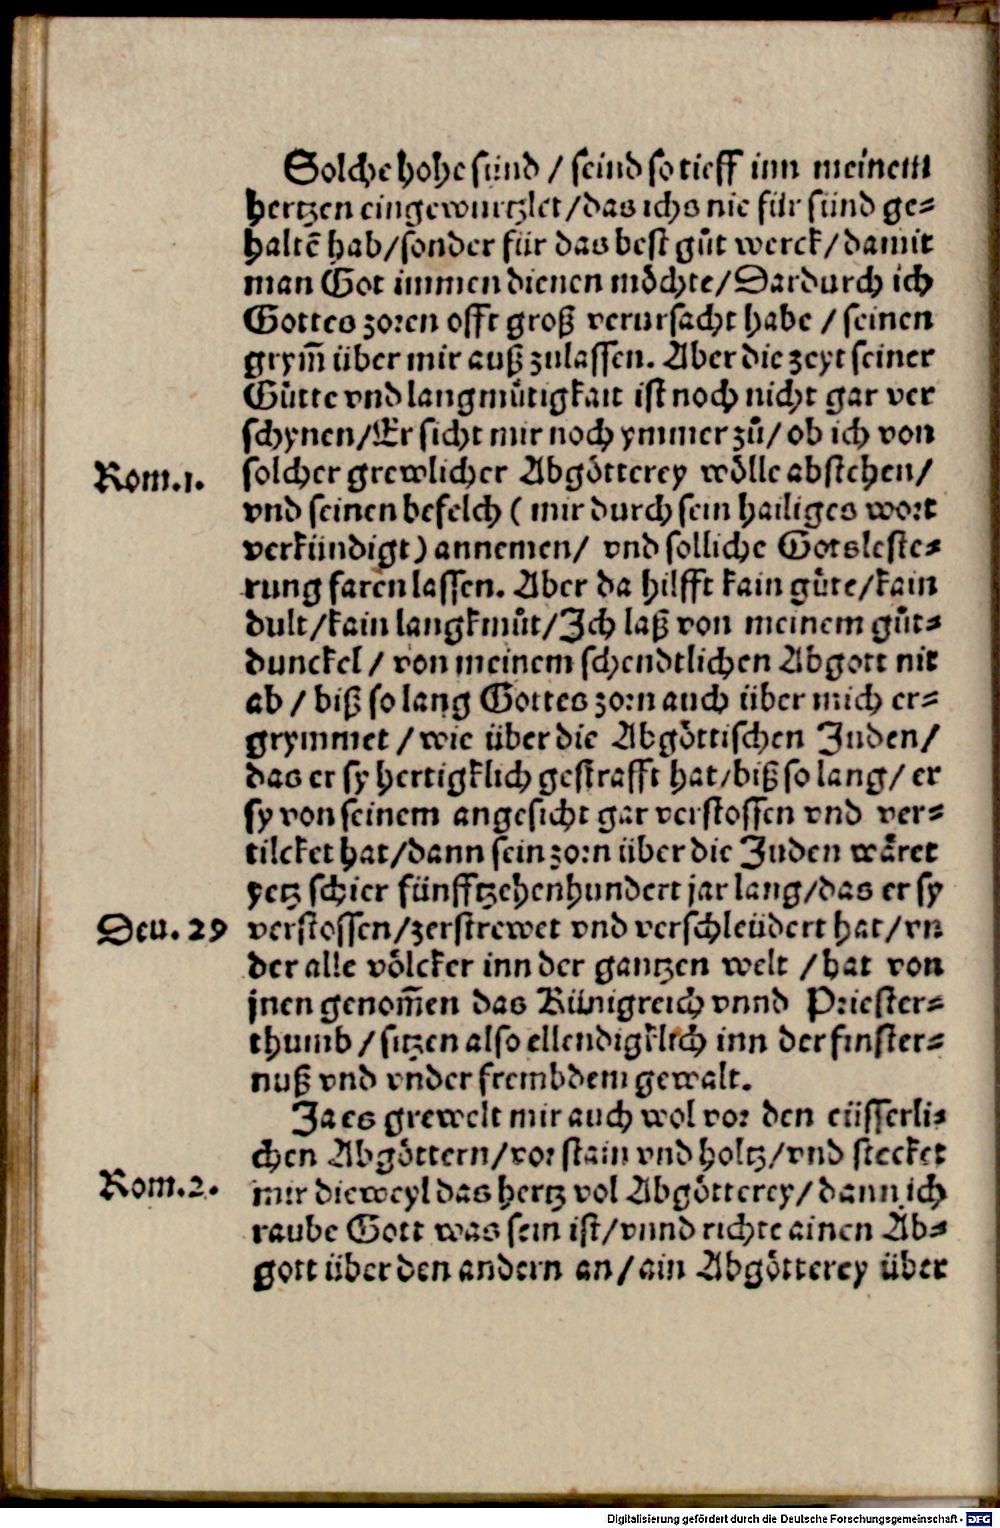 Solche hohe sünd / seind so tieff inn meinem
hertzen eingewurtzlet / das ichs nie für sünd ge⸗
haltē hab / sonder für das best gůt werck / damit
man Got immen dienen möchte / Dardurch ich
Gottes zoren offt groß verursacht habe / seinen
grym̄ über mir auß zulassen. Aber die zeyt seiner
Gůtte vnd langmůtigkait ist noch nicht gar ver
schynen / Er sicht mir noch ymmer zů / ob ich von
Rom.1. solcher grewlicher Abgötterey wölle abstehen /
vnd seinen befelch ( mir durch sein hailiges wort
verkündigt ) annemen / vnd solliche Gotsleste⸗
rung faren lassen. Aber da hilfft kain gůte / kain
dult / kain langkmůt / Ich laß von meinem gůt⸗
dunckel / von meinem schendtlichen Abgott nit
ab / biß so lang Gottes zorn auch über mich er⸗
grymmet / wie über die Abgöttischen Juden /
das er sy hertigklich gestrafft hat / biß so lang / er
sy von seinem angesicht gar verstossen vnd ver⸗
tilcket hat / dann sein zorn über die Juden wäret
yetz schier fünfftzehenhundert jar lang / das er sy
Deu. 29 verstossen / zerstrewet vnd verschleüdert hat / vn
der alle völcker inn der gantzen welt / hat von
jnen genom̄en das Künigreich vnnd Priester⸗
thumb / sitzen also ellendigklich inn der finster⸗
nuß vnd vnder frembdem gewalt.
Ja es grewelt mir auch wol vor den eüsserli⸗
chen Abgöttern / vor stain vnd holtz / vnd stecket
Rom.2. mir dieweyl das hertz vol Abgötterey / dann ich
raube Gott was sein ist / vnnd richte ainen Ab⸗
gott über den andern an / ain Abgötterey über
Digitalisierung gefördert durch die Deutsche Forschungsgemeinschaft - DFG